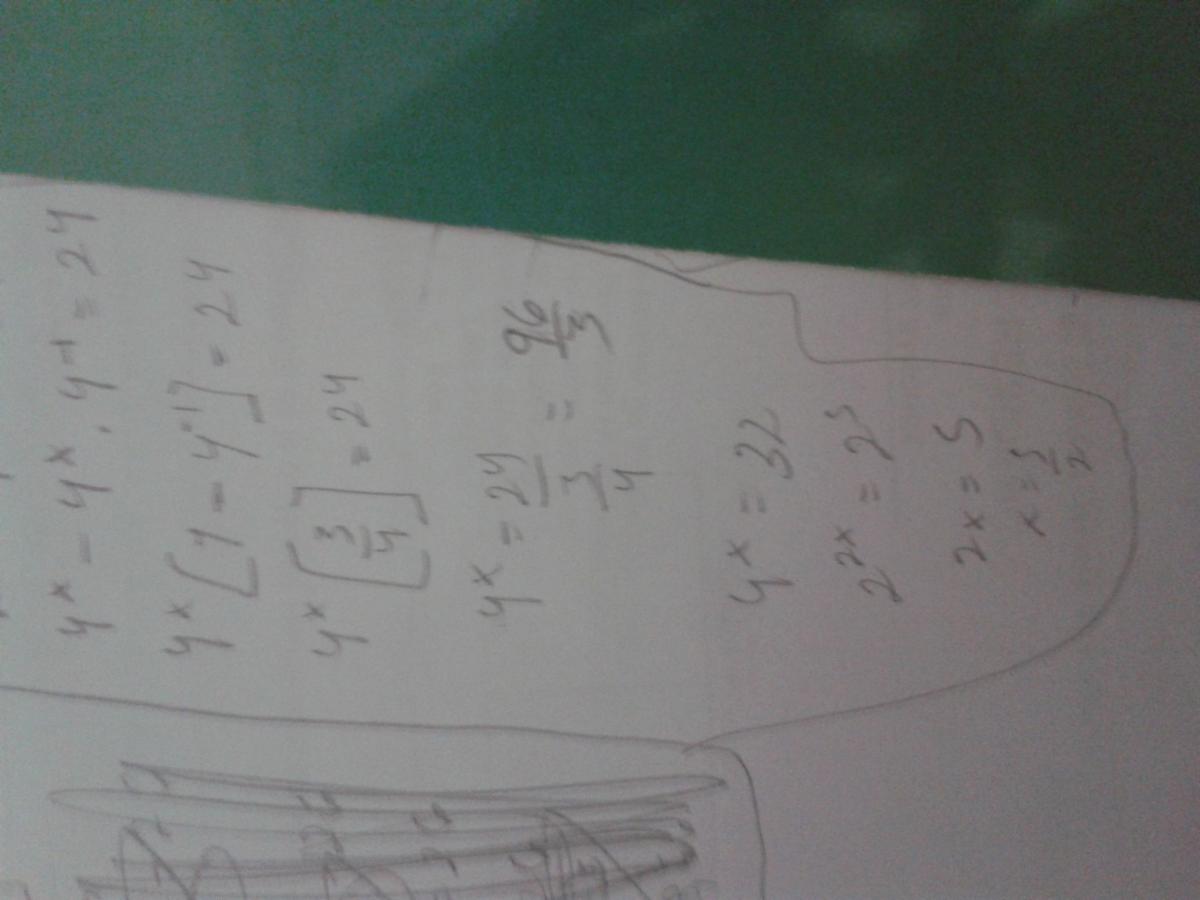 4^x - 4^x . 4^-1 = 24
4^x [1 - 4^-1] = 24
4^x [3/4] = 24
4^x = 24/(3/4) = 96/3
4^x = 32
2^2x = 2^5
2x = 5
x = 5/2